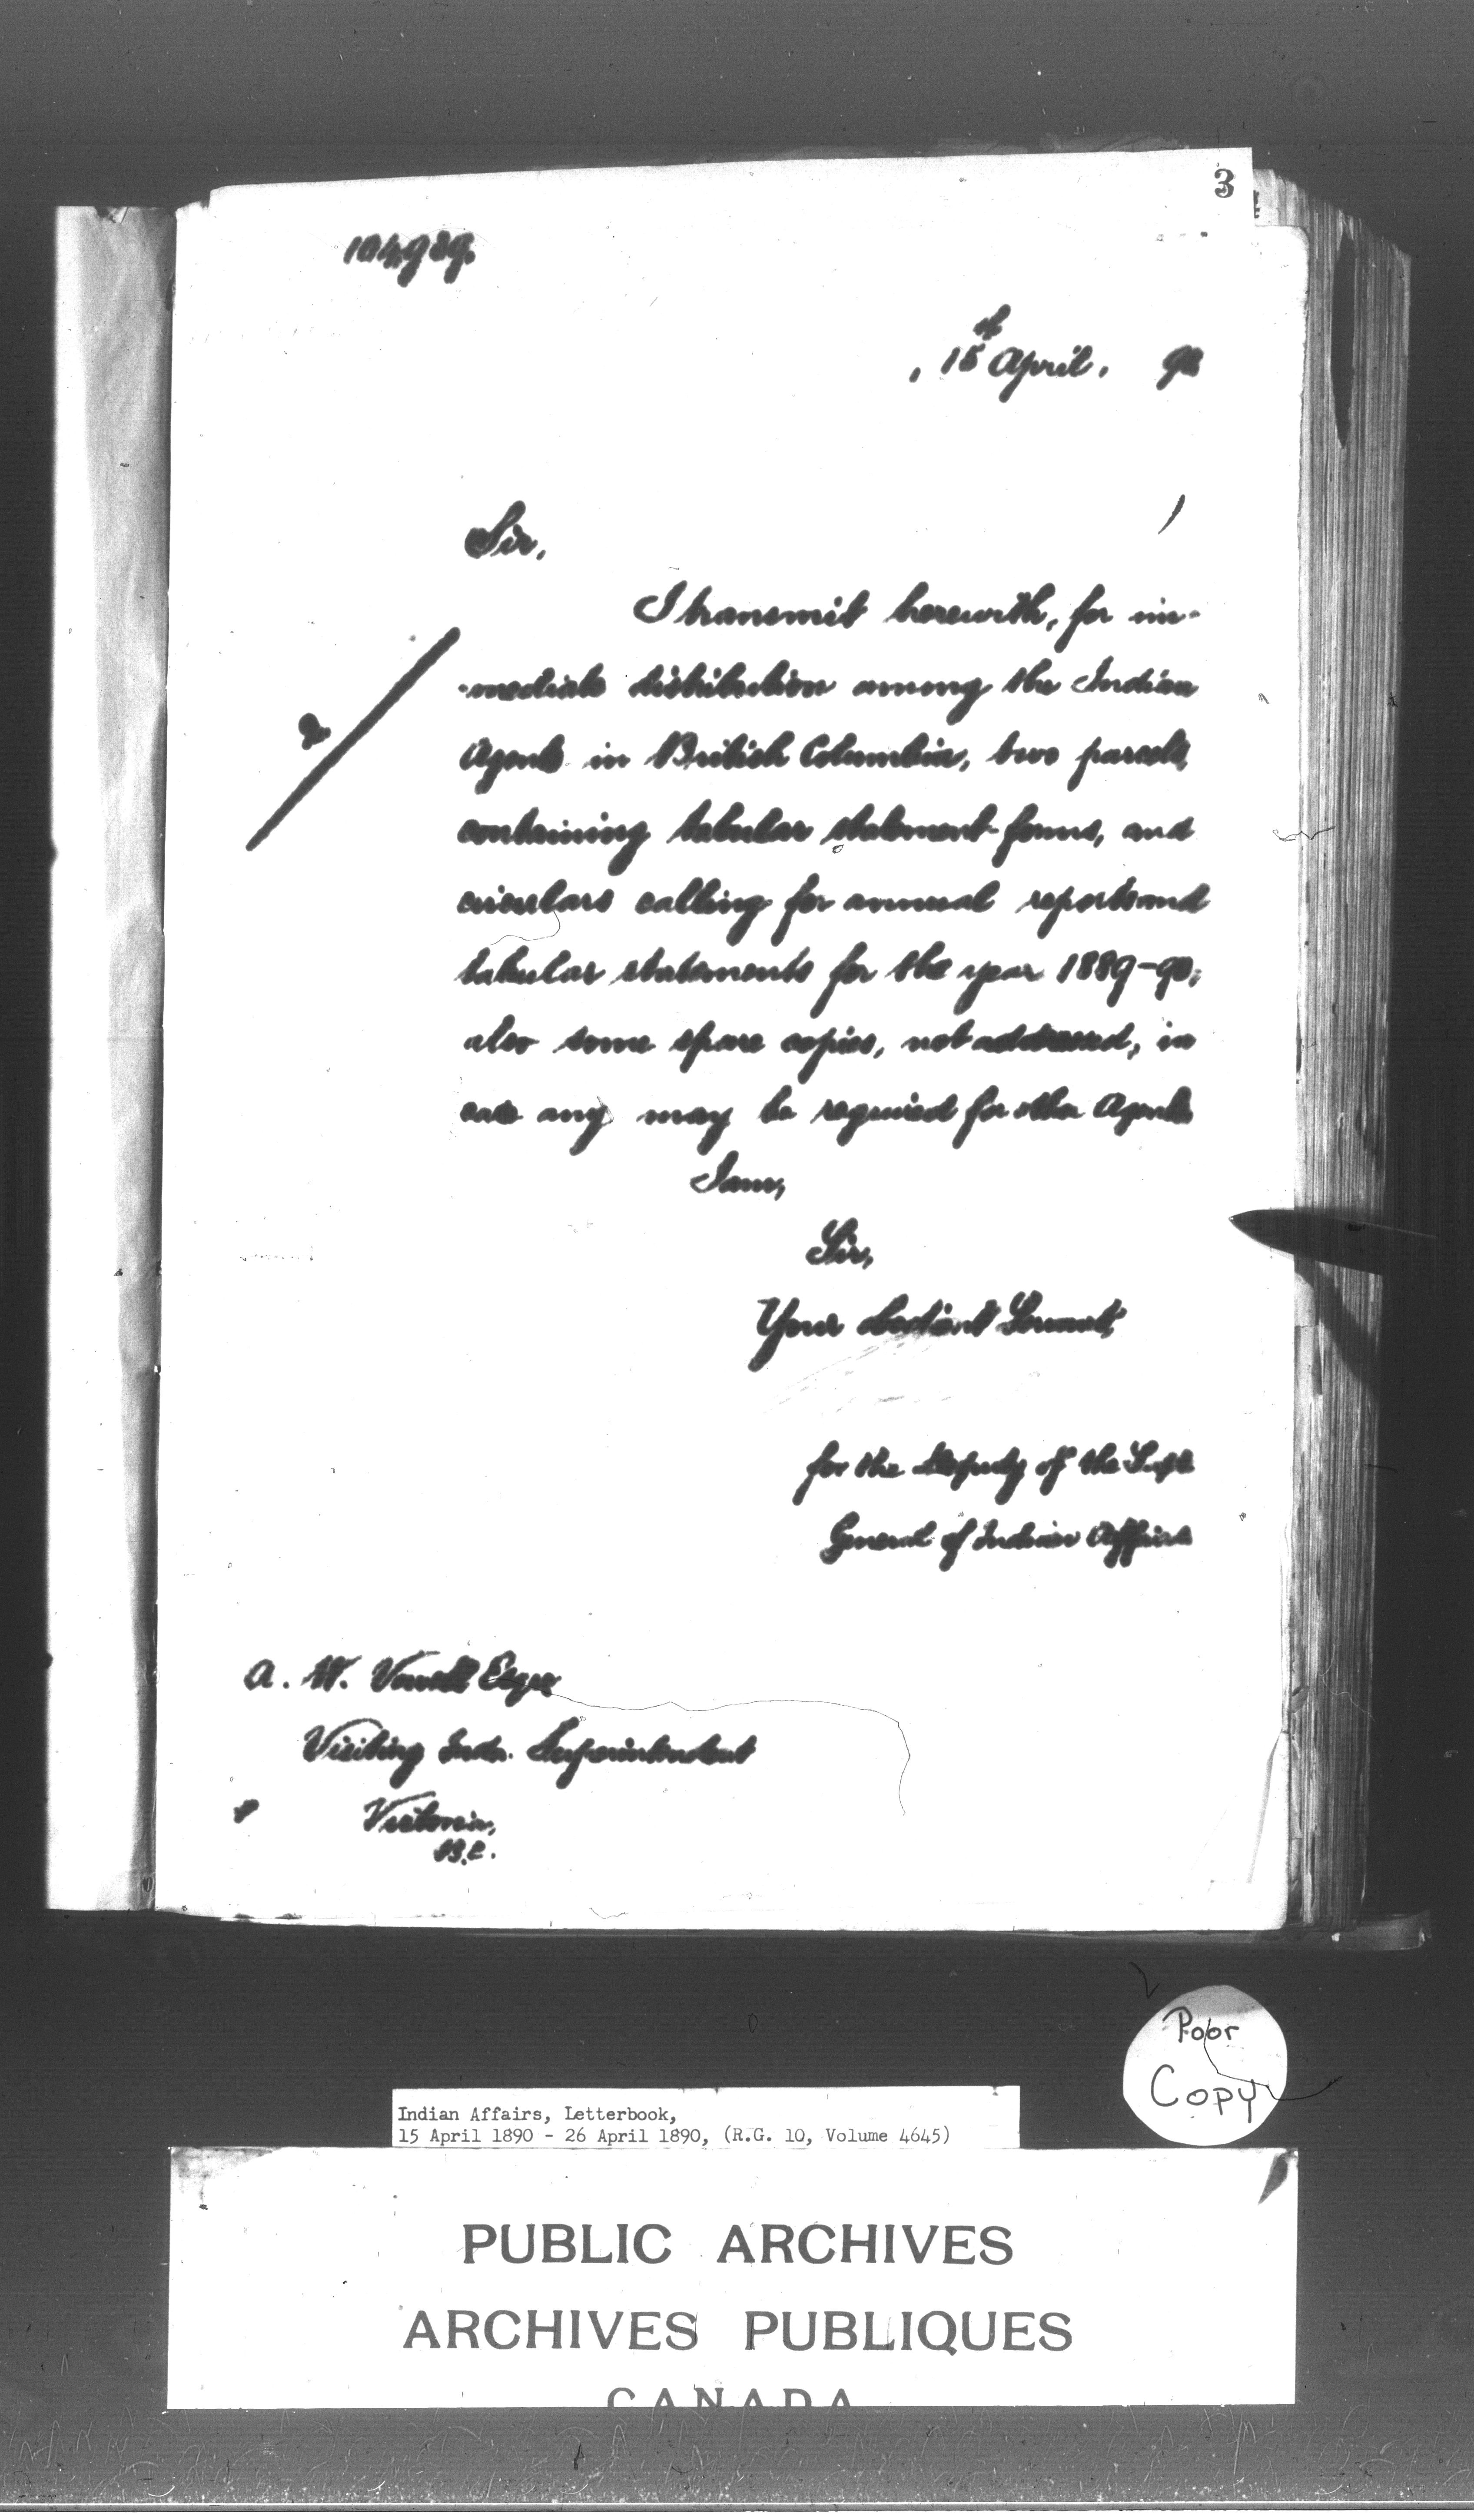 3
104,939.
, 15th April. 90
Sir,
I transmit herewith, for im-
-mediate distribution among the Indian
Agents in British Columbia, two parcels,
containing tabular statement forms, and
circulars calling for annual reports and
tabular statements for the year 1889-90;
also some spare copies, not addressed, in
case any may be required for other Agents
I am,
Sir,
Your obedient Servant,
for the Deputy of the Supt
General of Indian Affairs
A. W. Vowell Esqre
Visiting Indn. Superintendent
Victoria,
B.C.
Poor
Copy
Indian Affairs, Letterbook,
15 April 1890 - 26 April 1890, (R.G. 10, Volume 4645)
PUBLIC ARCHIVES
ARCHIVES PUBLIQUES
CANADA